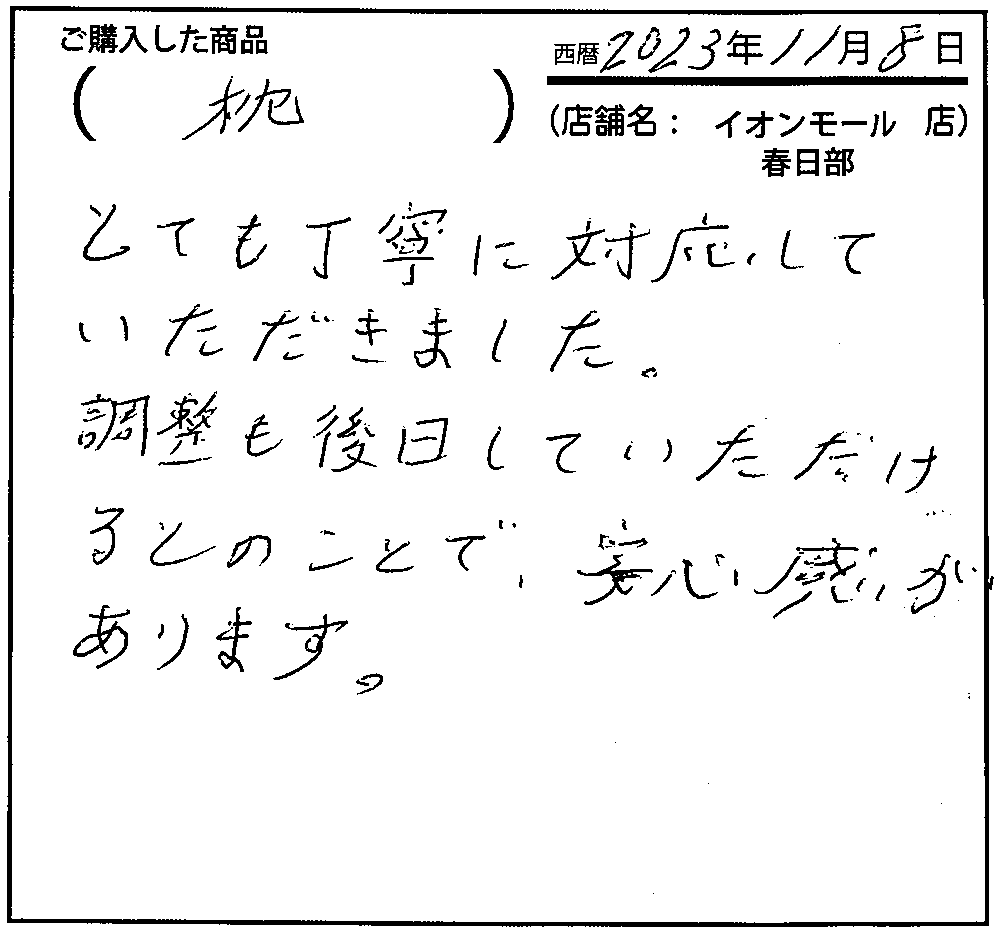 ご購入した商品
(枕)
西暦2023年11月8日
(店舗名： イオンモール 店)
春日部
とても丁寧に対応して
いただきました。
調整も後日していただけ
るとのことで、安心感が
あります。